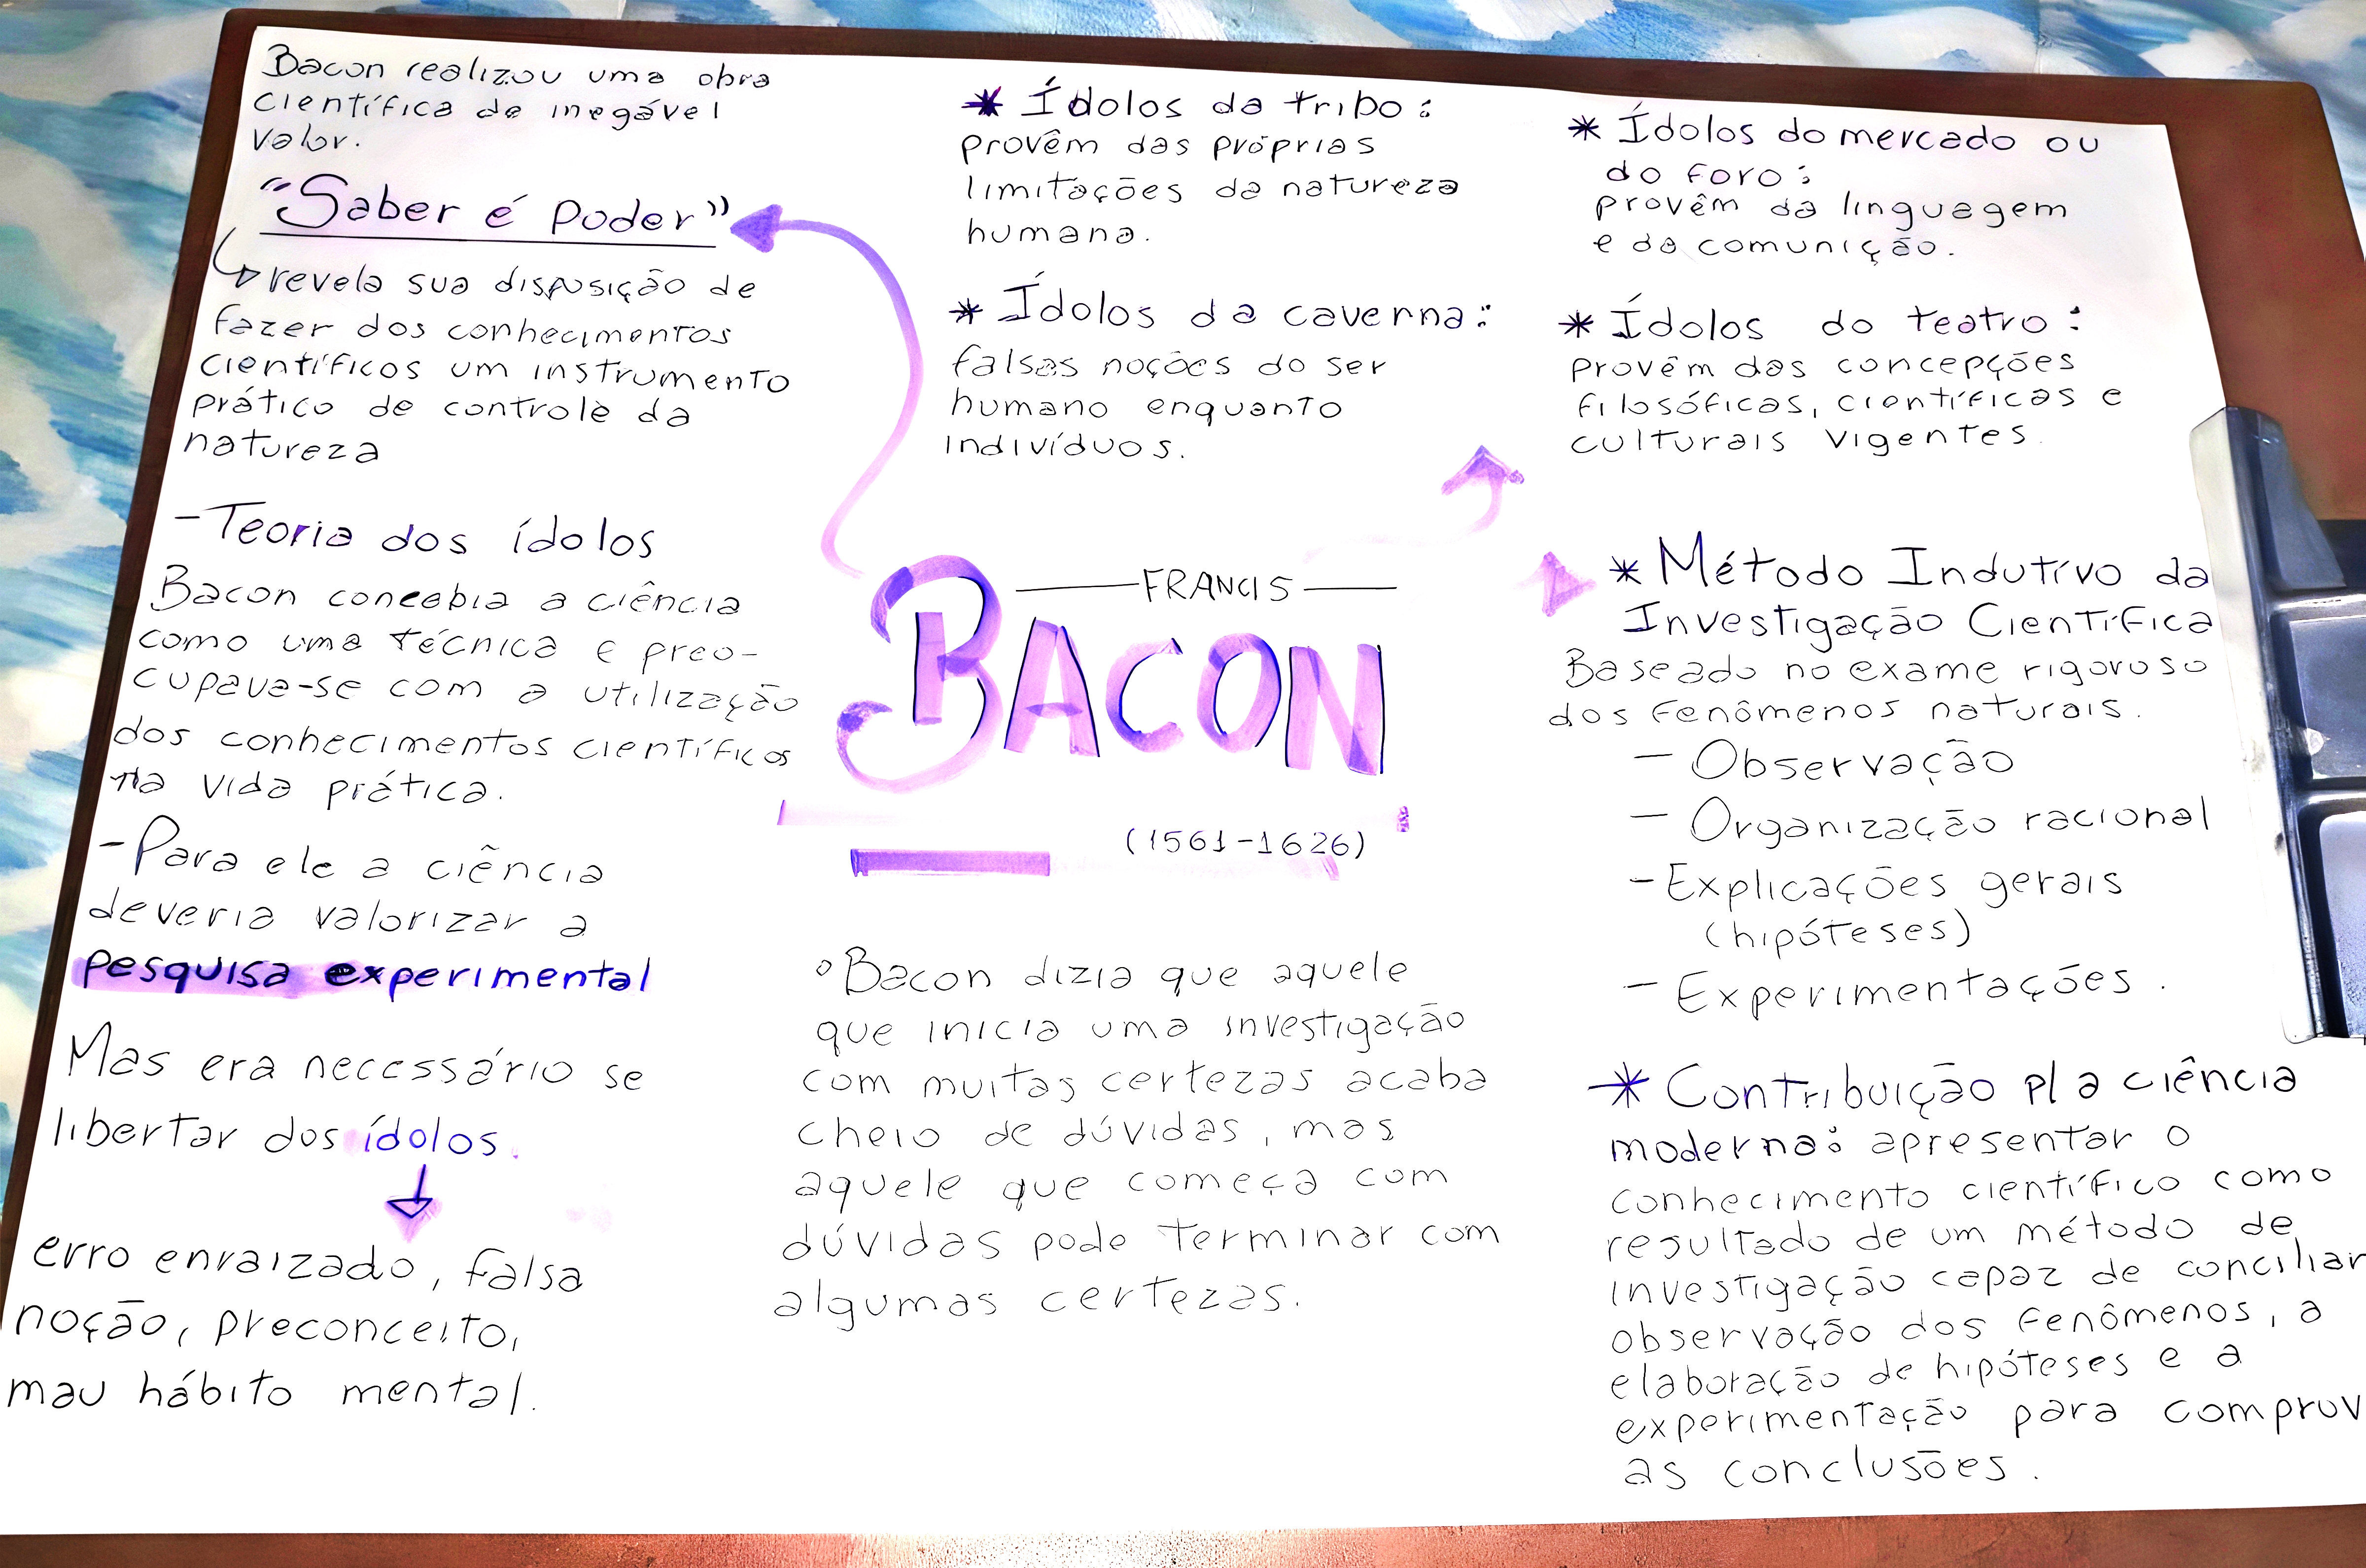 Bacon realizou uma obra
científica de inegável
valor.
"Saber é poder"
revela sua disposição de
fazer dos conhecimentos
científicos um instrumento
prático de controle da
natureza
- Teoria dos ídolos
Bacon concebia a ciência
como uma técnica e preo-
cupava-se com a utilização
dos conhecimentos científicos
na vida prática.
- Para ele a ciência
deveria valorizar a
pesquisa experimental
Mas era necessário se
libertar dos ídolos.
erro enraizado, falsa
noção, preconceito,
mau hábito mental.
* Ídolos da tribo:
provêm das próprias
limitações da natureza
humana.
* Ídolos da caverna:
falsas noções do ser
humano enquanto
indivíduos.
FRANCIS
BACON
(1561-1626)
° Bacon dizia que aquele
que inicia uma investigação
com muitas certezas acaba
cheio de dúvidas, mas
aquele que começa com
dúvidas pode terminar com
algumas certezas.
* Ídolos do mercado ou
do foro:
provêm da linguagem
e da comunição.
* Ídolos do teatro:
provêm das concepções
filosóficas, científicas e
culturais vigentes.
* Método Indutivo da
Investigação Científica
Baseado no exame rigoroso
dos fenômenos naturais.
- Observação
- Organização racional
- Explicações gerais
(hipóteses)
- Experimentações.
* Contribuição p/ a ciência
moderna: apresentar o
conhecimento científico como
resultado de um método de
investigação capaz de conciliar
observação dos fenômenos, a
elaboração de hipóteses e a
experimentação para comprov
as conclusões.